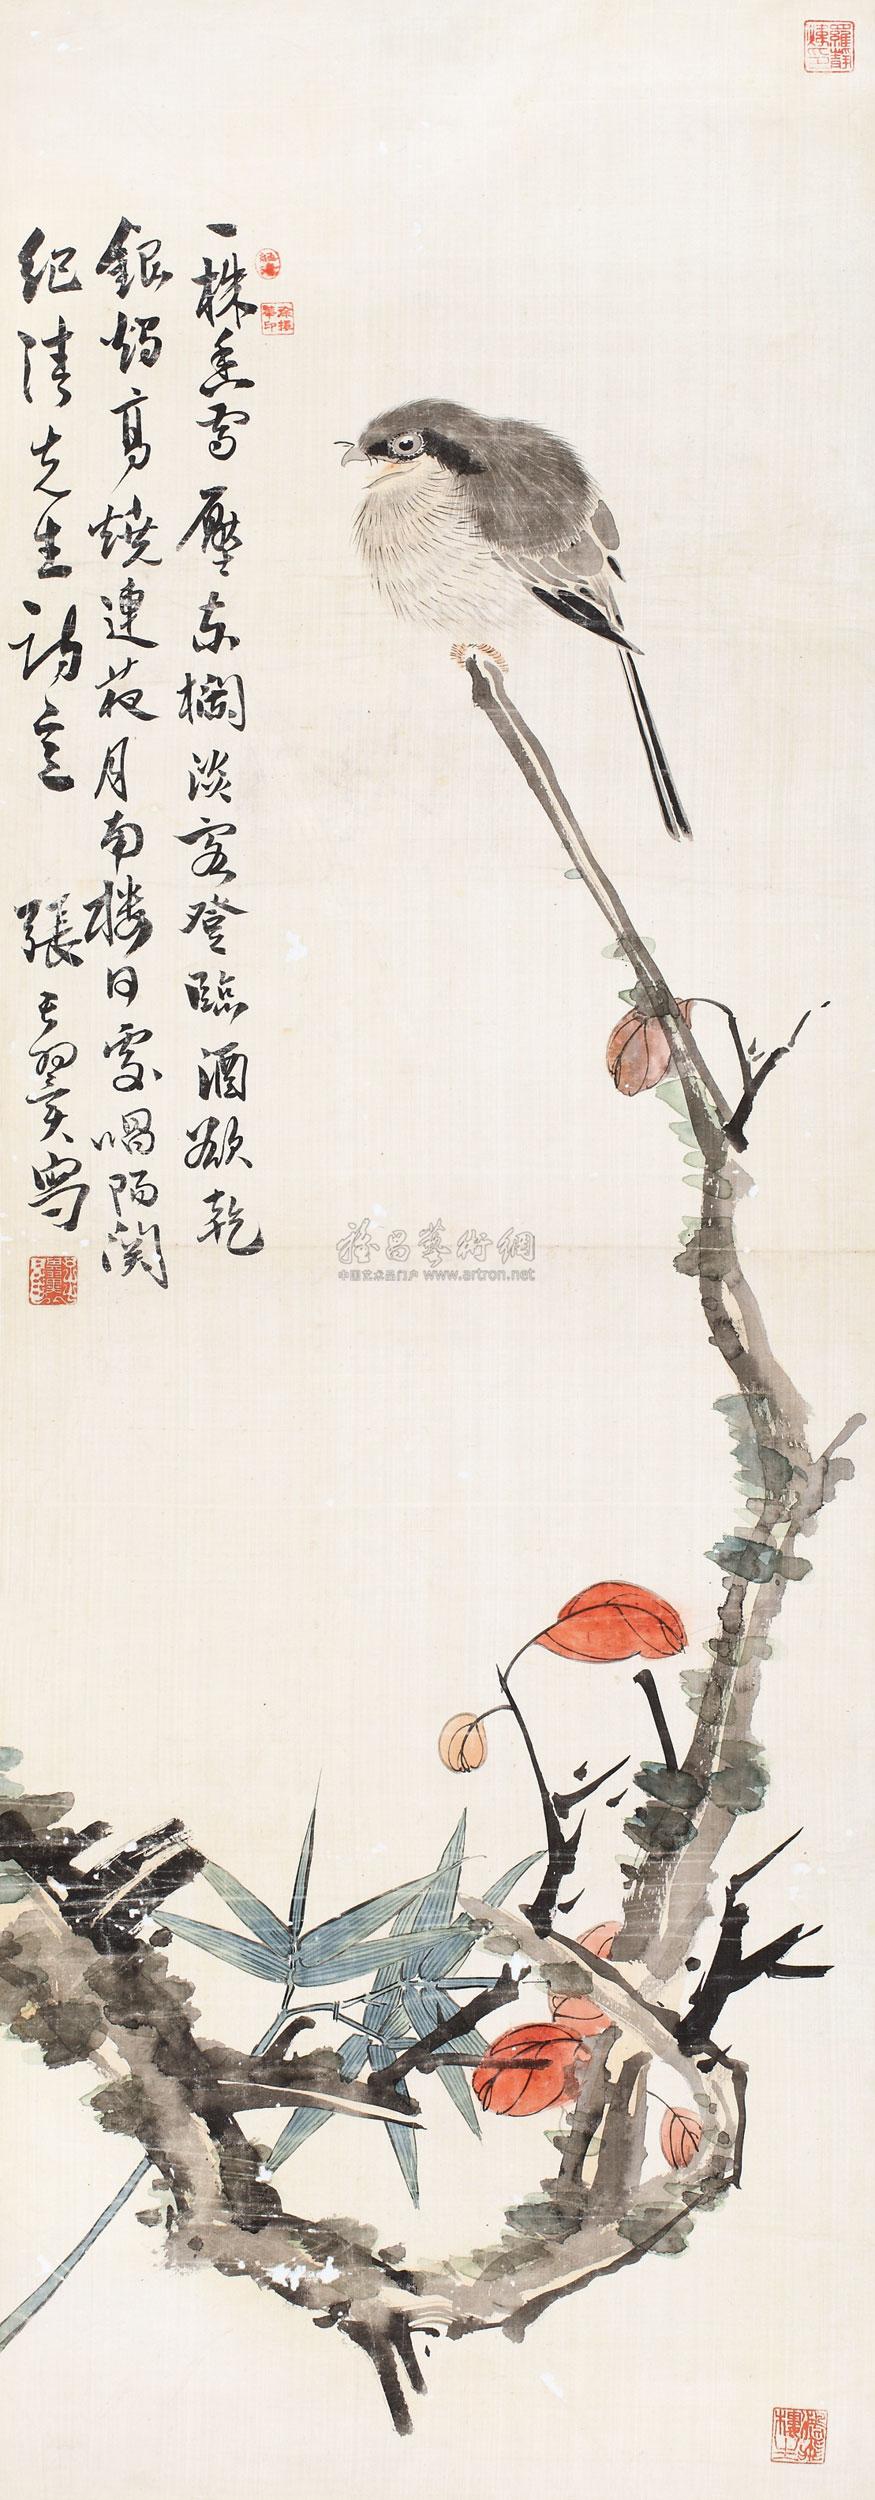 一株香雪壓東欄淡客登臨酒欲乾
銀燭高燒連夜月南樓日處唱陽関
紀清先生詩意 張其翼寫
雅昌藝術網
中国艺术品门户 www.artron.net